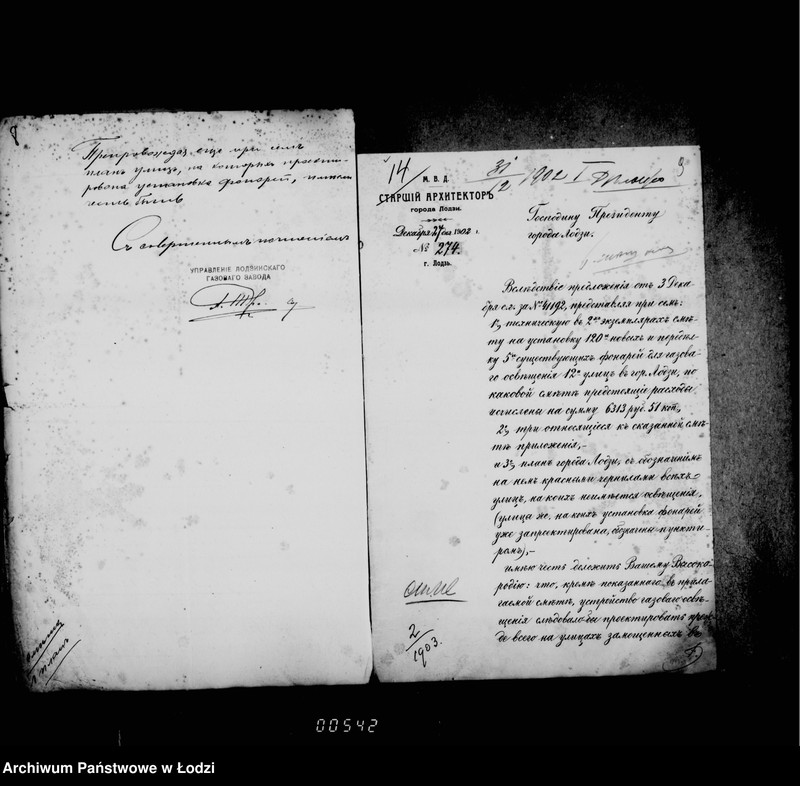 8
Препровождая еще при семъ
планъ улицъ, на которыхъ проекти-
рована установка фонарей, имѣемъ
честь быть
Съ совершеннымъ почтеніемъ
УПРАВЛЕНІЕ ЛОДЗИНСКАГО
ГАЗОВАГО ЗАВОДА
14
31/12 1902 I
9
М. В. Д.
СТАРШІЙ АРХИТЕКТОРЪ
города Лодзи.
Декабря 27 дня 1902 г.
№ 274.
г. Лодзь.
Господину Президенту
города Лодза.
Вслѣдствіе предложенія отъ 3 Дека-
бря с.г. за № 41192, представляя при семъ:
1, техническую въ 2хъ экземплярахъ смѣ-
ту на установку 120и новыхъ и передѣл-
ку 5и существующихъ фонарей для газова-
го освѣщенія 12и улицъ въ гор. Лодзи, по
каковой смѣтѣ предстоящіе расходы
исчислены на сумму 6313 руб. 51 коп.,
2, три относящіеся къ сказанной смѣ-
тѣ приложенія,-
и 3, планъ города Лодзи, съ обозначеніемъ
на немъ красными чернилами всѣхъ
улицъ, на коихъ неимѣется освѣщенія,
(улицы же, на коихъ установка фонарей
уже запроектирована, обозначены пункти-
ромъ),-
имѣю честь доложить Вашему Высоко-
родію: что, кромѣ показаннаго въ прила-
гаемой смѣтѣ, устройство газоваго освѣ-
щенія слѣдовало бы проектировать преж-
де всего на улицахъ замощенныхъ въ
2/1903.
00542
Archiwum Państwowe w Łodzi